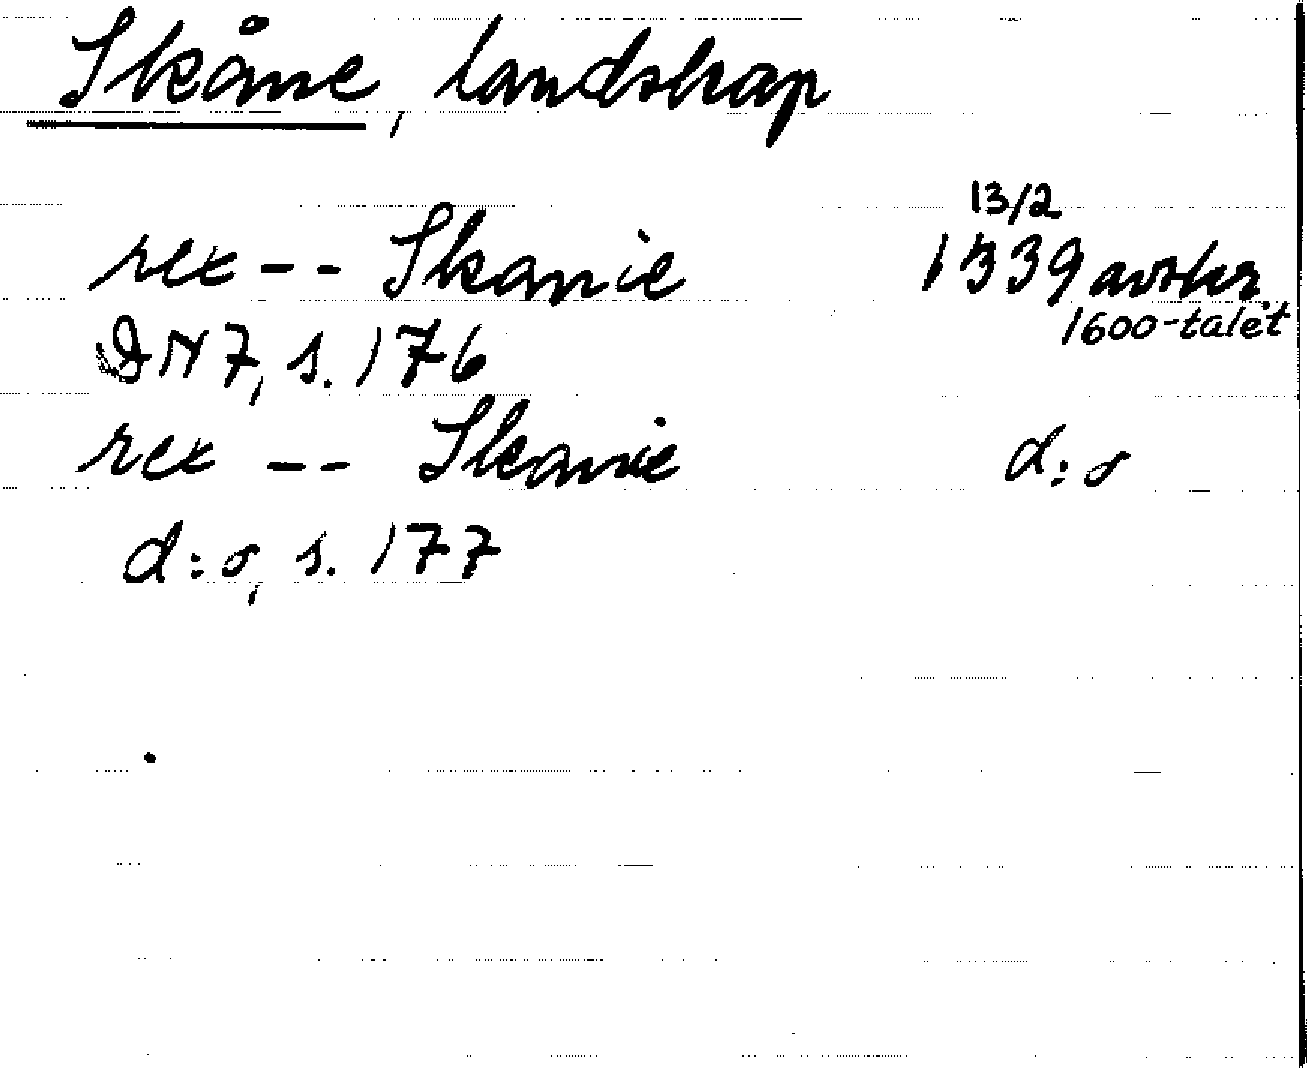 Skåne, landskap
13/2
rex -- Skanie 1339 avskr.
1600-talet
DN 7, s. 176
rex -- Skanie d:o
d:o, s. 177